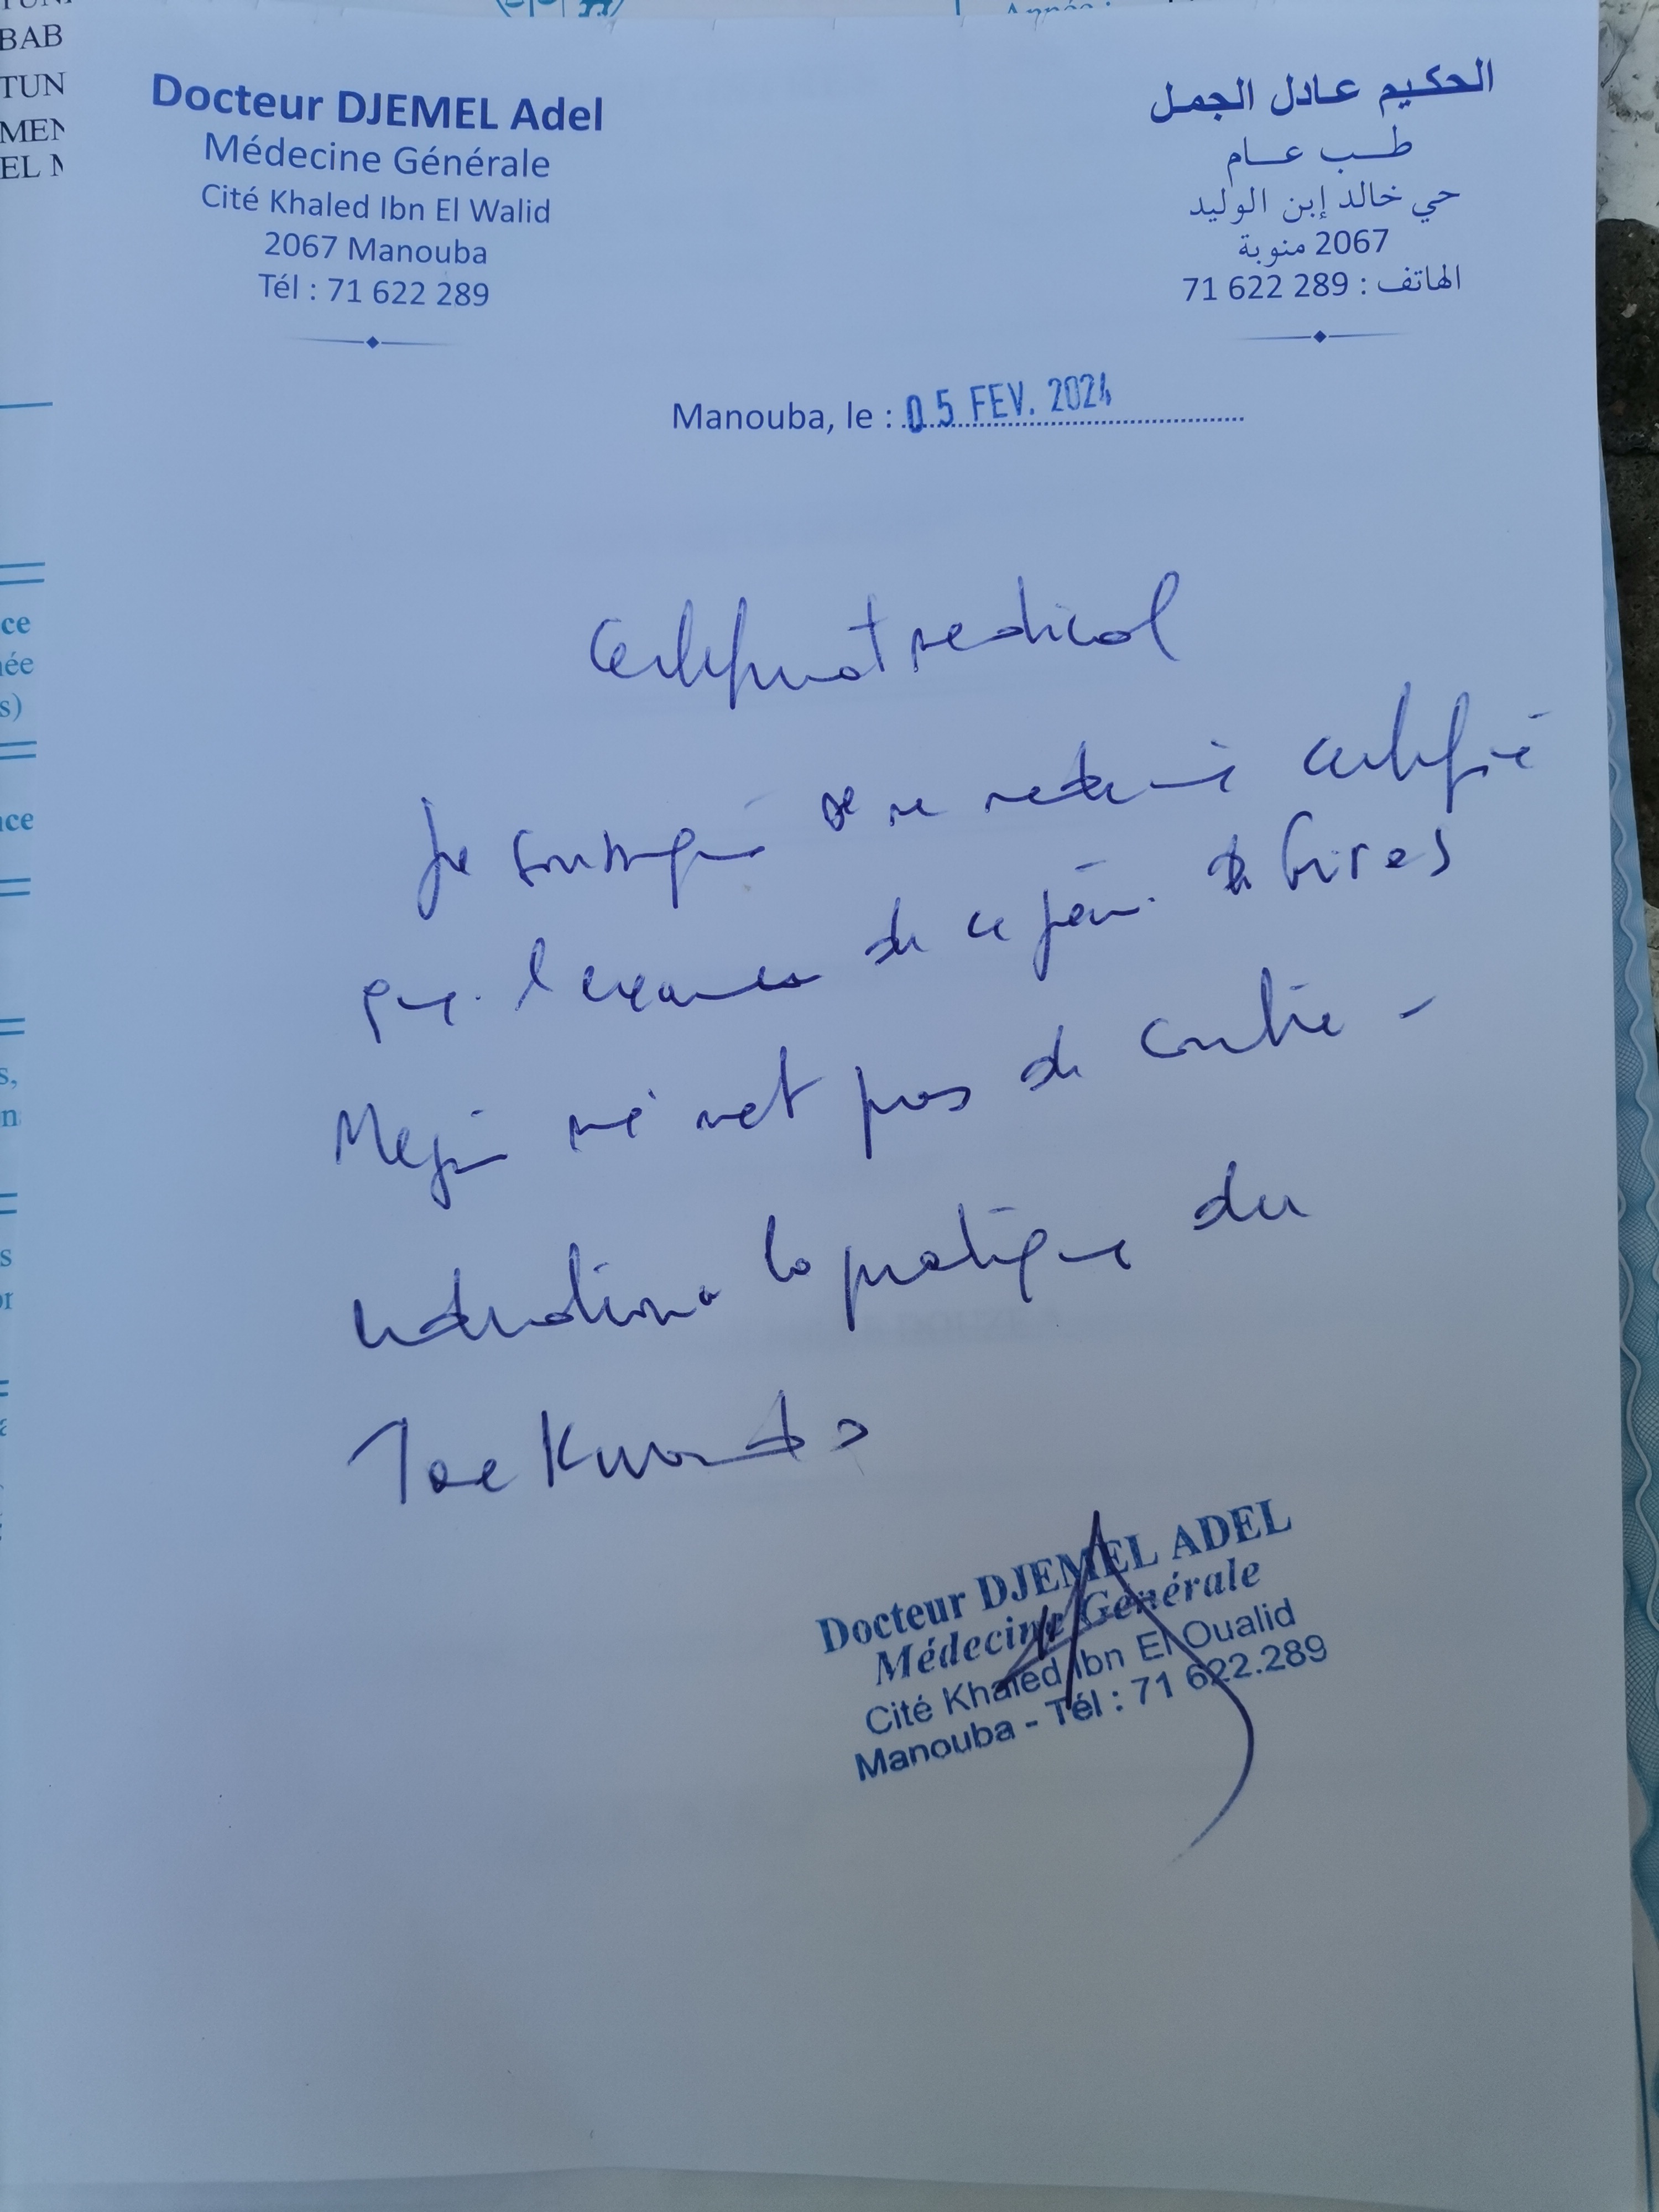 BAB
TUN
MEN
EL M
Docteur DJEMEL Adel
Médecine Générale
Cité Khaled Ibn El Walid
2067 Manouba
Tél : 71 622 289
الحكيم عادل الجمل
طب عام
حي خالد إبن الوليد
2067 منوبة
الهاتف : 289 622 71
Manouba, le : 05 FEV. 2024
Certificat medical
Je soussigné certifie
que l'examen de ce jour de
Mejri ne met pas de contre-
indication a la pratique du
Taekwondo
Docteur DJEMEL ADEL
Médecine Générale
Cité Khaled Ibn El Oualid
Manouba - Tél : 71 622.289
ce
née
s)
nce